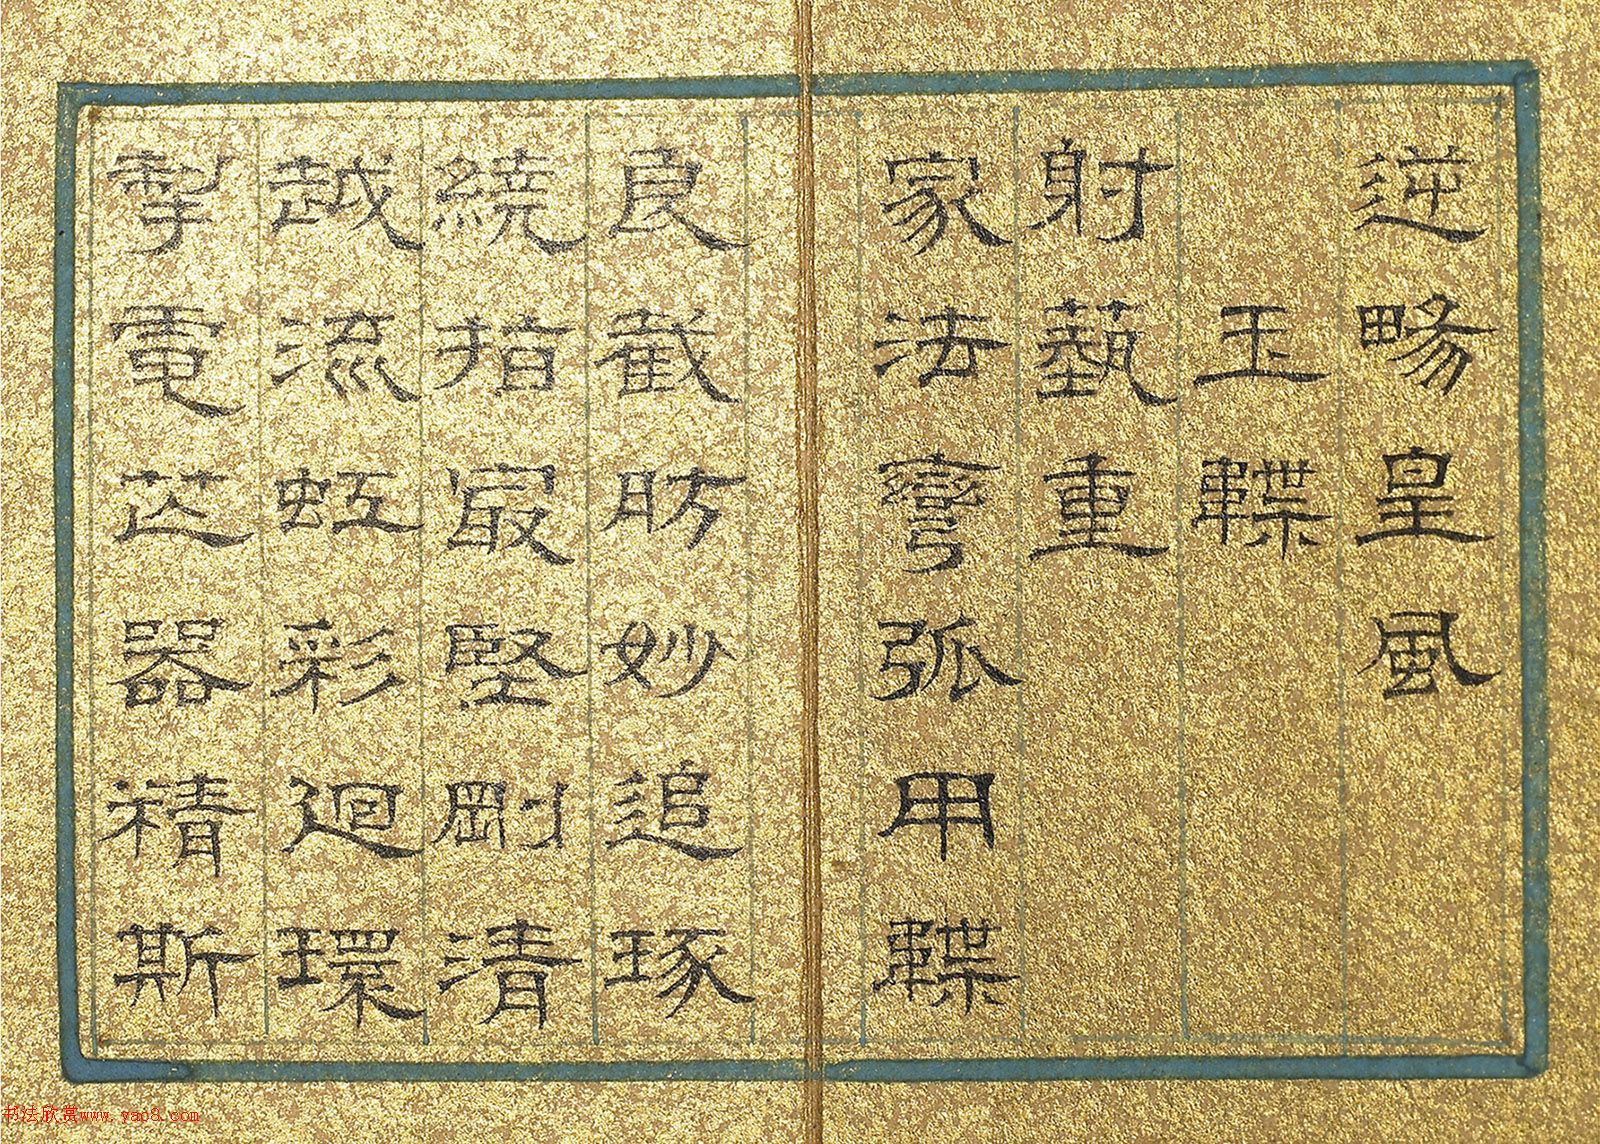 逆暢皇風
玉韘
射藝重
家法彎弧用韘
良截肪妙追琢
繞指最堅剛清
越流虹彩迴環
掣電芒器精斯
书法欣赏www.yac8.com